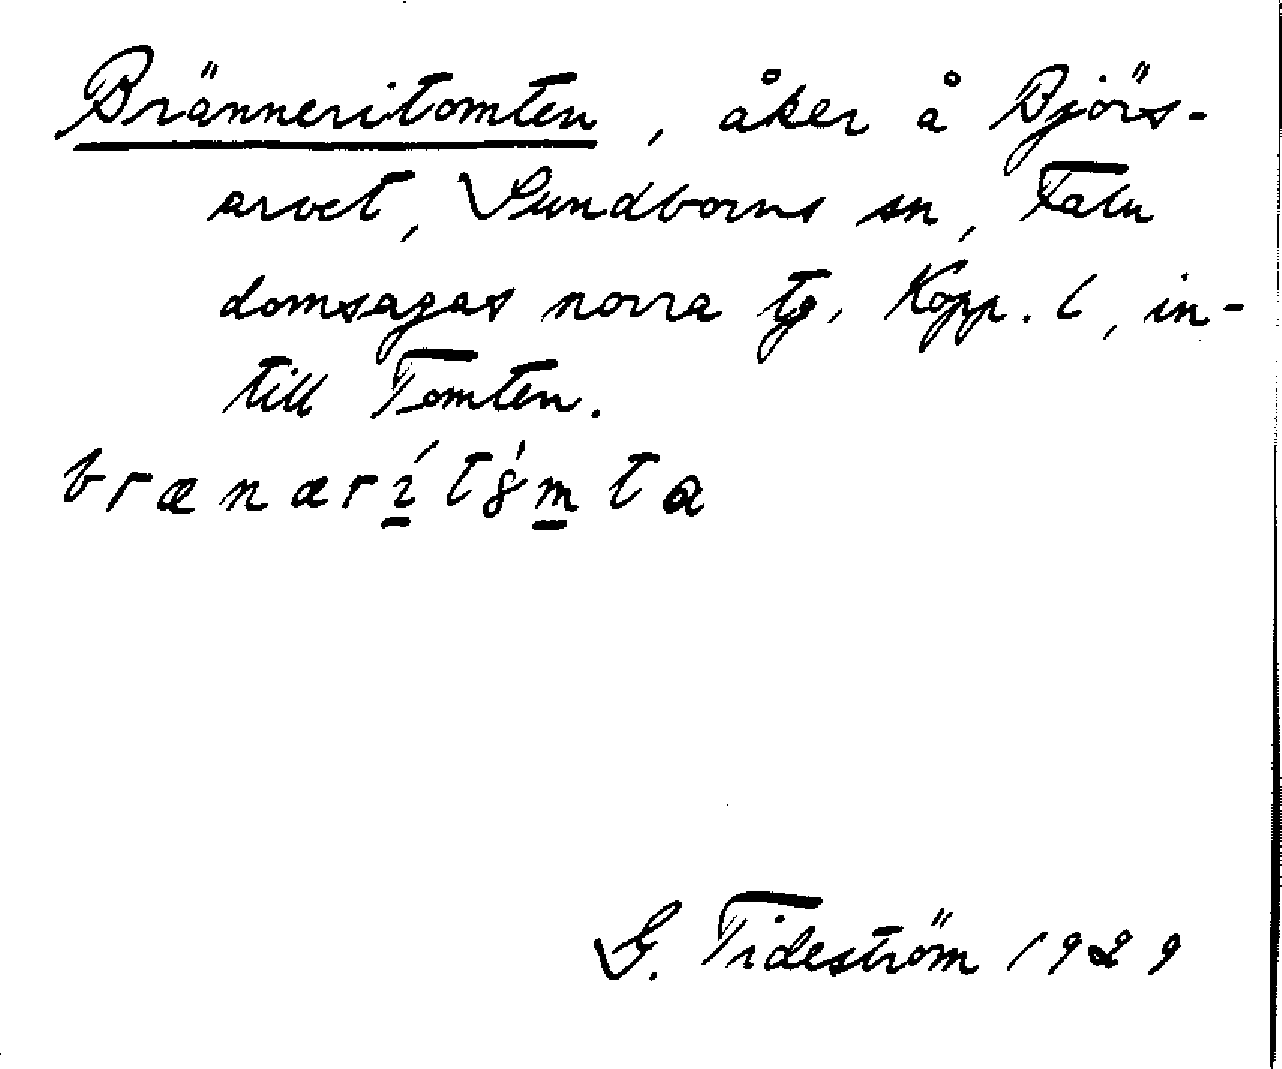 Bränneritomten, åker å Björs-
arvet, Sundborns sn, Falu
domsagas norra tg. Kopp. l, in-
till Tomten.
brænærít8́mta
G. Tideström 1929